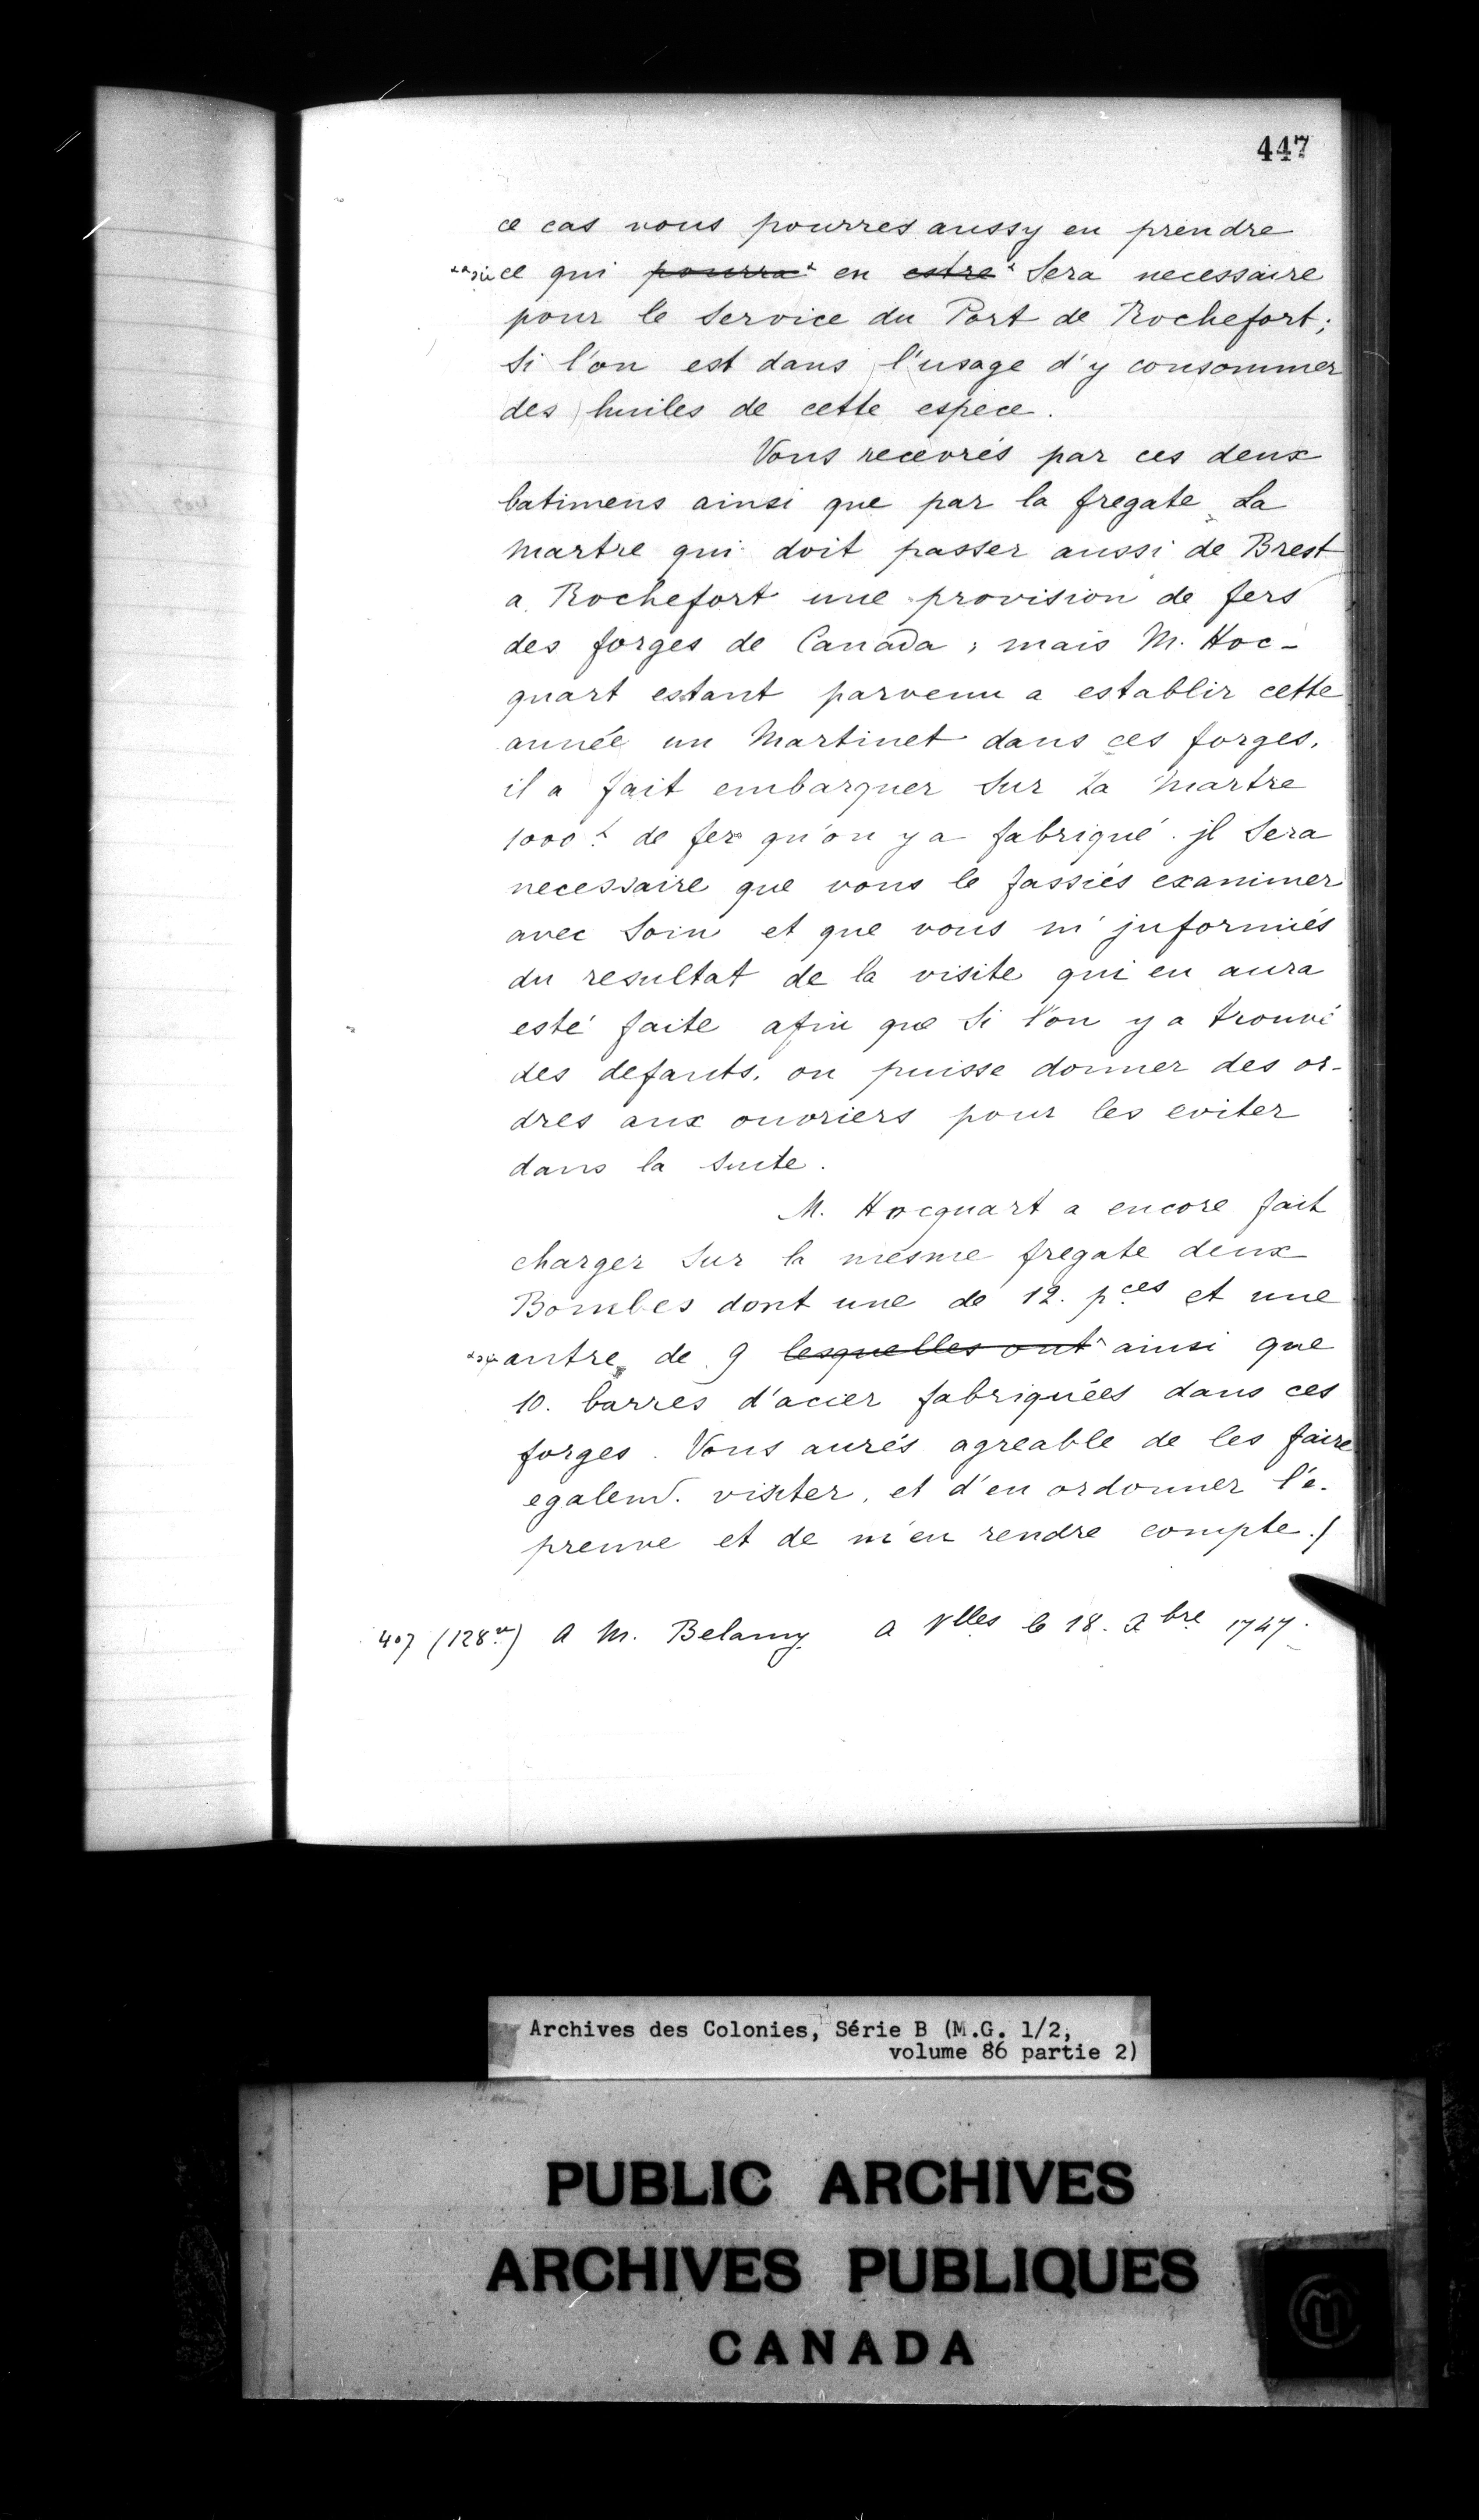 447
ce cas vous pourres aussy en prendre
ce qui ~~pourra~~ en ~~estre~~ Sera necessaire
pour le Service du Port de Rochefort;
Si l'on est dans l'usage d'y consommer
des huiles de cette espece.
Vous recevrés par ces deux
batimens ainsi que par la fregate La
Martre qui doit passer aussi de Brest
a Rochefort une provision de fers
des forges de Canada; mais M. Hoc-
quart estant parvenu a establir cette
année un Martinet dans ces forges,
il a fait embarquer Sur La Martre
1000 L de fer qu'on y a fabriqué. jl Sera
necessaire que vous le fassiés examiner
avec Soin et que vous m'jnformiés
du resultat de la visite qui en aura
esté faite afin que Si l'on y a trouvé
des defauts, on puisse donner des or-
dres aux ouvriers pour les eviter
dans la Suite.
M. Hocquart a encore fait
charger Sur la mesme fregate deux
Bombes dont une de 12. pces et une
autre de 9 ~~lesquelles ont~~ ainsi que
10. barres d'acier fabriquées dans ces
forges. Vous aurés agreable de les faire
egalemt. visiter, et d'en ordonner l'é-
preuve et de m'en rendre compte./
407 (128vo) A M. Belamy A Vlles le 18. Xbre 1747.
Archives des Colonies, Série B (M.G. 1/2,
volume 86 partie 2)
PUBLIC ARCHIVES
ARCHIVES PUBLIQUES
CANADA